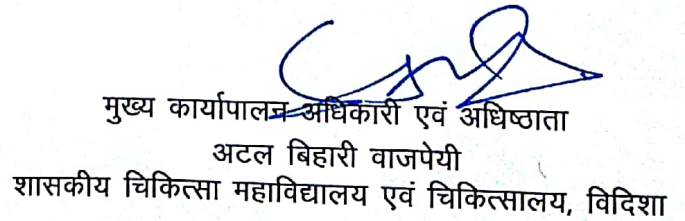 मुख्य कार्यापालन अधिकारी एवं अधिष्ठाता
अटल बिहारी वाजपेयी
शासकीय चिकित्सा महाविद्यालय एवं चिकित्सालय, विदिशा